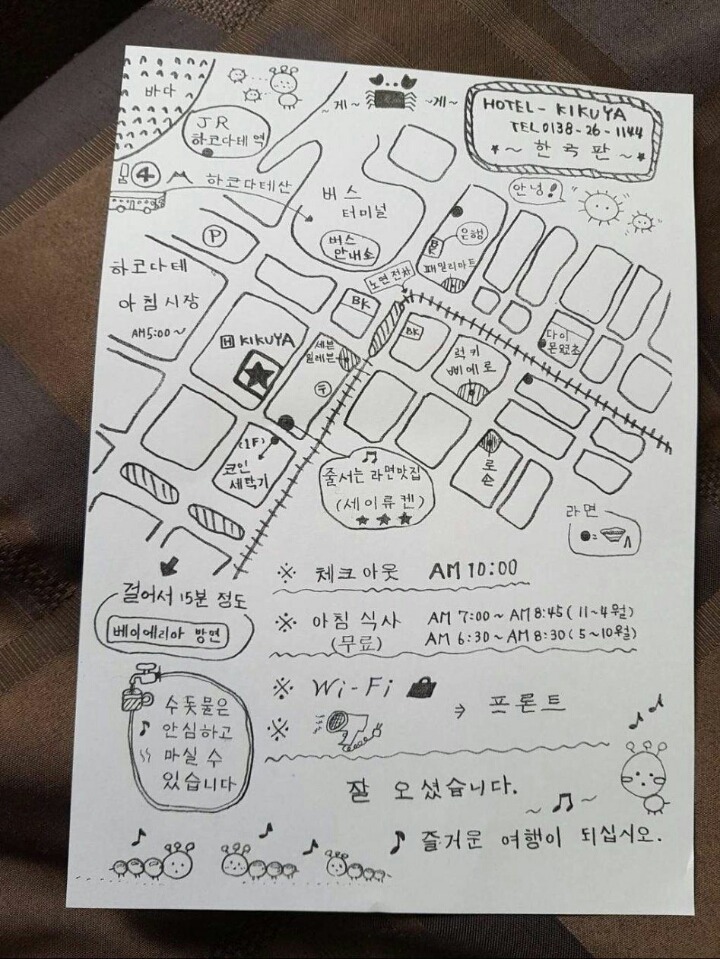 바다
~게~
~게~
HOTEL - KIKUYA
TEL 0138-26-1144
★~ 한국판 ~★
JR
하코다테역
안녕!
4
하코다테산
버스
터미널
버스
안내소
은행
BK
패밀리마트
P
노면전차
하코다테
아침시장
AM5:00~
BK
BK
H KIKUYA
세븐
일레븐
〒
럭키
삐에로
다이
몬요코쵸
(1F)
코인
세탁기
줄서는 라면맛집
(세이류켄)
★★★
로손
라면
● =
걸어서 15분 정도
베이에리아 방면
※ 체크아웃 AM 10:00
※ 아침 식사 AM 7:00 ~ AM 8:45 (11~4월)
(무료) AM 6:30 ~ AM 8:30 (5~10월)
※ Wi-Fi
※ ⇒ 프론트
수돗물은
♪ 안심하고
마실 수
있습니다
잘 오셨습니다.
~ ♫ ~
♪ 즐거운 여행이 되십시오.